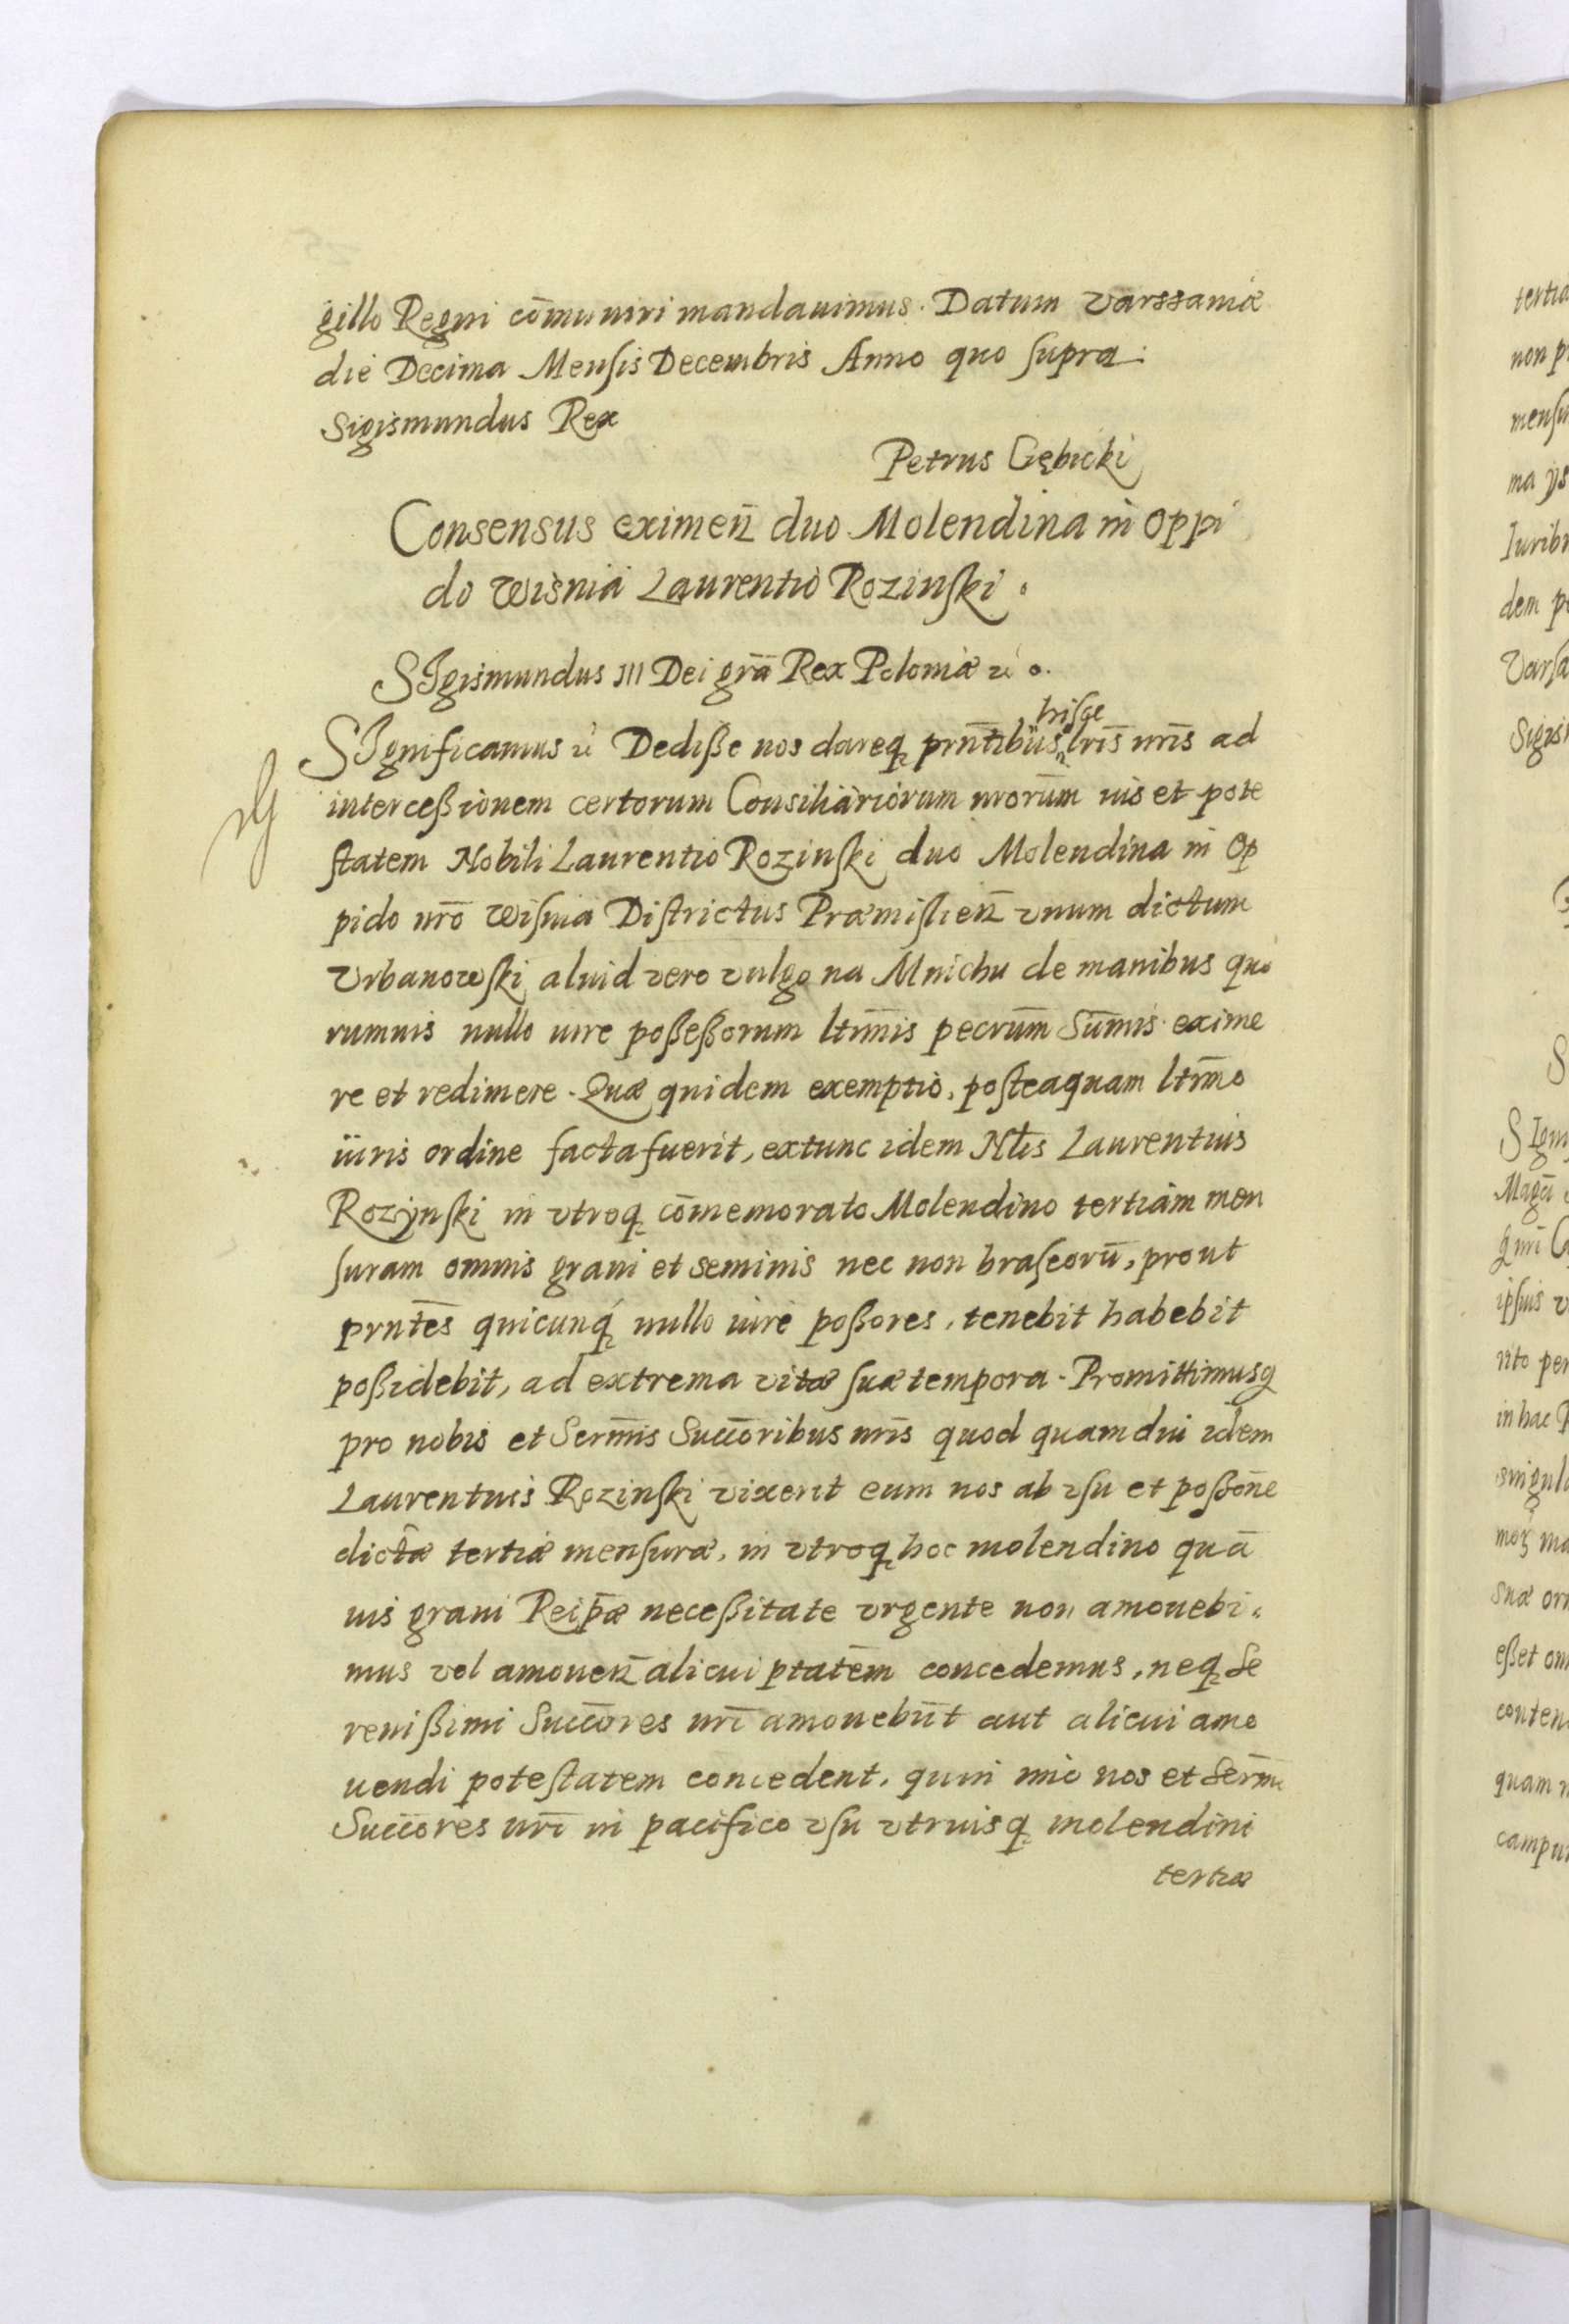 gillo Regni cōmuniri mandauimus. Datum Varssaviæ
die Decima Mensis Decembris Anno quo supra.
Sigismundus Rex
Petrus Gębicki
Consensus eximen̄ duo Molendina in Oppi
do Wisnia Laurentio Rozinski.
SIgismundus III Dei grā Rex Poloniæ
hisce
SIgnificamus Dedisse nos dareq prn̄tibus lris̄ nris̄ ad
intercessionem certorum Consiliariorum nrorūm ius et pote
statem Nobili Laurentio Rozinski duo Molendina in Op
pido nrō Wisnia Districtus Præmislien̄ vnum dictum
Vrbanowski aliud vero vulgo na Mnichu de manibus quo
rumuis nullo iure possessorum ltīmis pecrūm Sūmis exime
re et redimere. Quæ quidem exemptio, posteaquam ltīmo
iuris ordine facta fuerit, extunc idem Nłis Laurentius
Rozynski in vtroq cōmemorato Molendino tertiam men
suram omnis grani et seminis nec non braseorū, prout
prnt̄es quicunq nullo iure possores, tenebit habebit
possidebit, ad extrema vitæ suæ tempora. Promittimusq
pro nobis et Serm̄is Succ̄oribus nris̄ quod quamdiu idem
Laurentius Rozinski vixerit eum nos ab vsu et possōne
dictæ tertiæ mensuræ, in vtroq hoc molendino quā
uis graui Reip̄æ necessitate vrgente non amouebi
mus vel amouen̄ alicui ptatēm concedemus, neq Se
renissimi Succ̄ores nrī amouebūt aut alicui amo
uendi potestatem concedent, quin imo nos et Serm̄i
Succ̄ores nrī in pacifico vsu vtriusq molendini
tertiæ